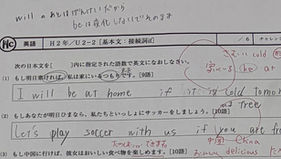 willのあとはげんけいだから
beは変化しないでそのまま
Hc 英語 H2年/U2-2 [基本文:接続詞if]
次の日本文を[ ]内に指定された語数で英文になおしなさい。
(1) もし明日寒ければ、私は家にいるつもりです。[9語]
I will be at home if it is cold tomor
(2) もしあなたがひまなら、私たちといっしょにサッカーをしましょう。[10語]
free
Let's play soccer with us if you are fr
(3) もし中国に行けば、彼女はおいしい食べ物を楽しめます。[10語]
中国 China
delicious